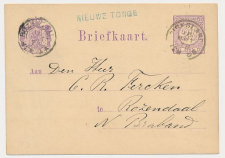 NIEUWE TONGE
Briefkaart.
Aan Den Heer
C. R. Fercken
te Rozendaal
N. Braband